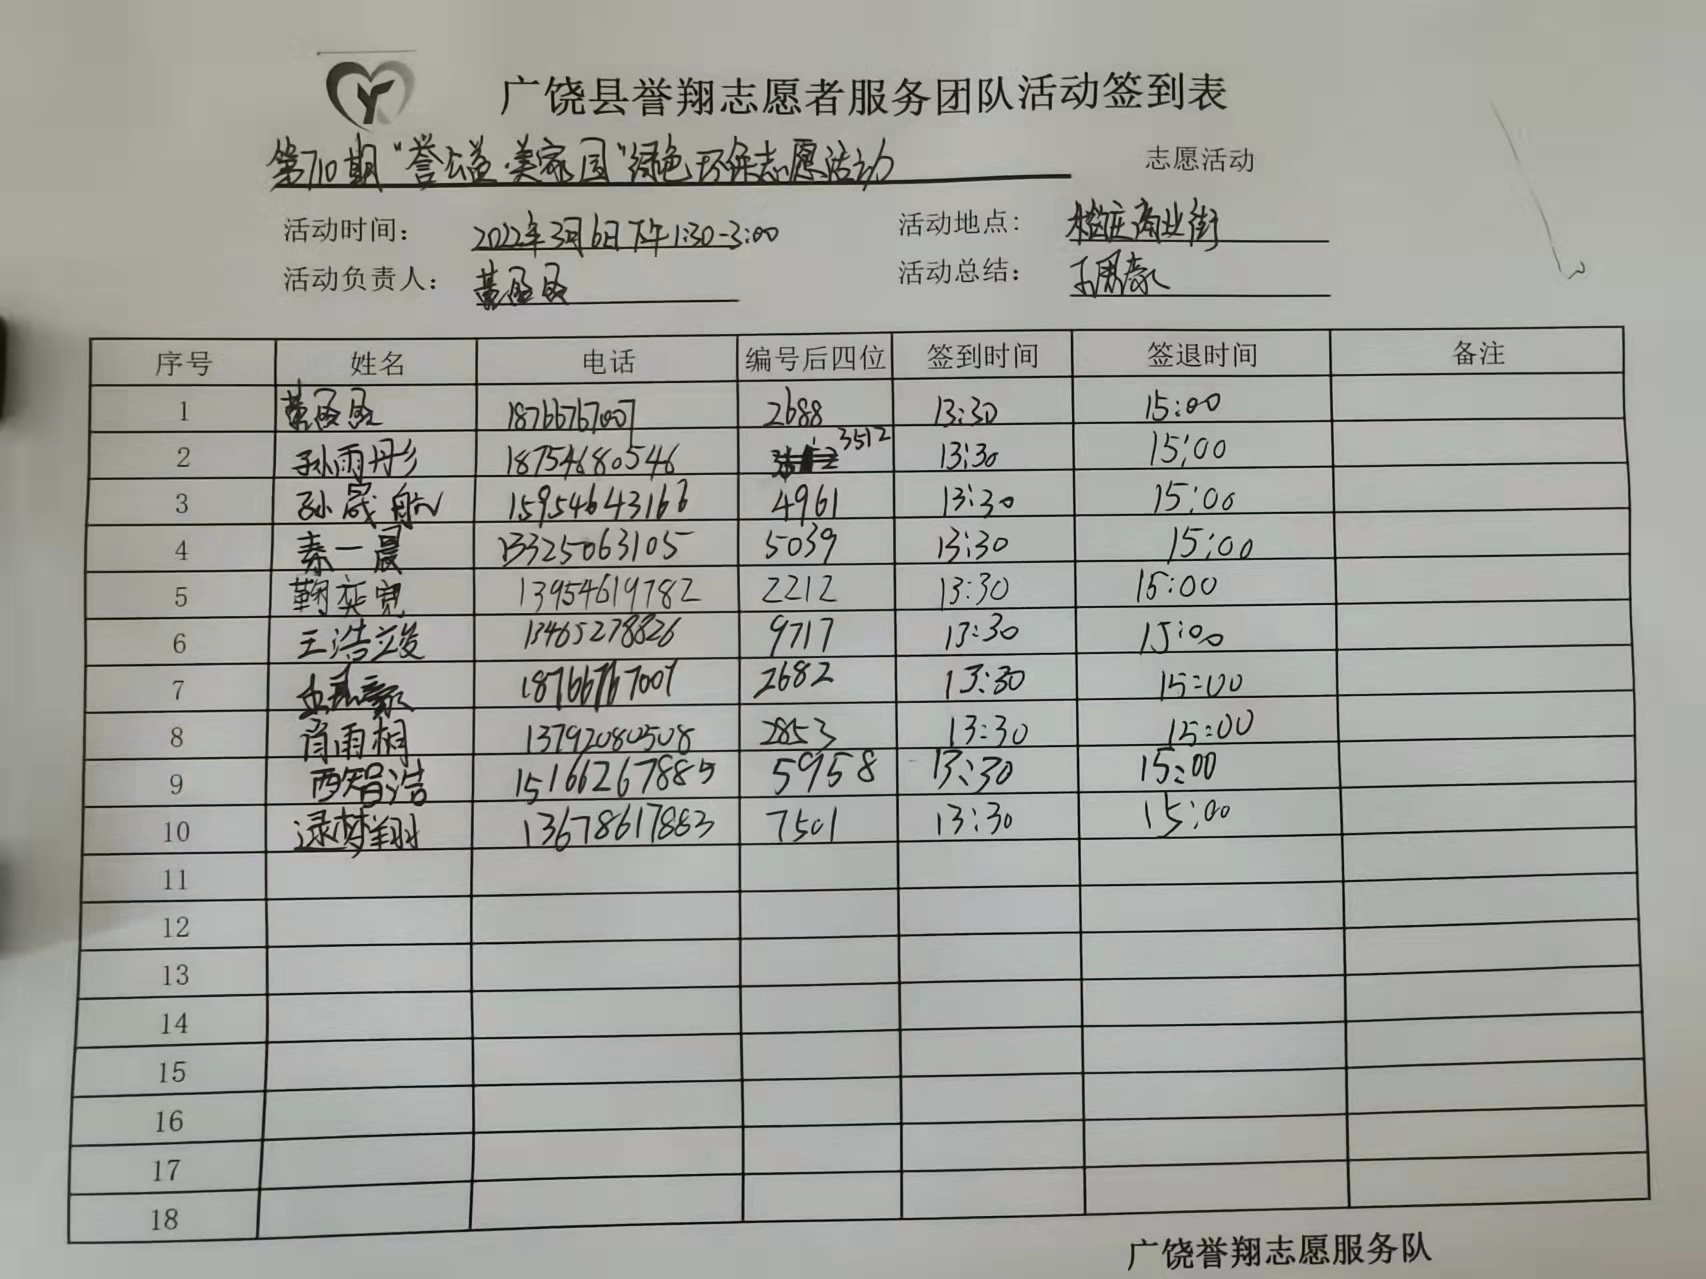 广饶县誉翔志愿者服务团队活动签到表
第710期“誉公益·美家园”绿色环保志愿活动 志愿活动
活动时间： 2022年3月6日下午1:30-3:00 活动地点： 商业街
活动负责人： 活动总结：
序号 姓名 电话 编号后四位 签到时间 签退时间 备注
1 18766767007 2688 13:30 15:00
2 孙雨彤 18754680546 3512 13:30 15:00
3 孙晟航 15954643166 4961 13:30 15:00
4 秦一晨 13325063105 5039 13:30 15:00
5 鞠奕宽 13954619782 2212 13:30 15:00
6 王浩竣 13465278826 9717 13:30 15:00
7 18766767007 2682 13:30 15:00
8 肖雨桐 13792080508 2853 13:30 15:00
9 智浩 15166267885 5958 13:30 15:00
10 梦翔 13678617883 7501 13:30 15:00
11
12
13
14
15
16
17
18
广饶誉翔志愿服务队